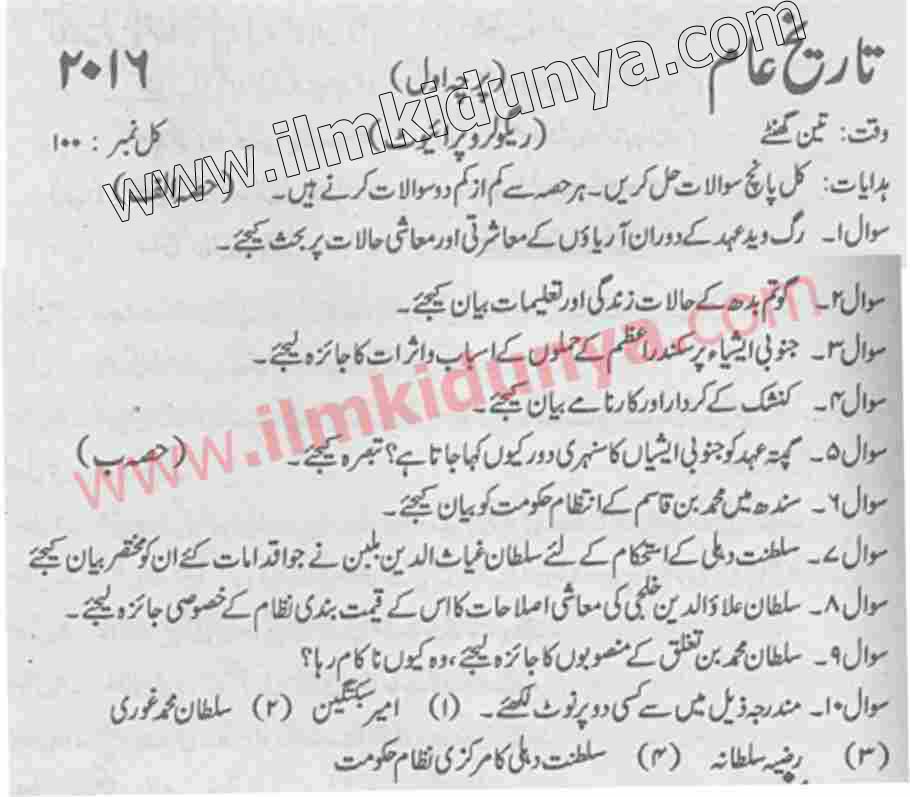 تاریخ عام
(پرچہ اول)
۲۰۱۶
وقت: تین گھنٹے (ریگولر و پرائیویٹ) کل نمبر: ۱۰۰
ہدایات: کل پانچ سوالات حل کریں۔ ہر حصہ سے کم از کم دو سوالات کرنے ہیں۔ (حصہ الف)
سوال ۱۔ رگ وید عہد کے دوران آریاؤں کے معاشرتی اور معاشی حالات پر بحث کیجئے۔
سوال ۲۔ گوتم بدھ کے حالات زندگی اور تعلیمات بیان کیجئے۔
سوال ۳۔ جنوبی ایشیاء پر سکندر اعظم کے حملوں کے اسباب و اثرات کا جائزہ لیجئے۔
سوال ۴۔ کنشک کے کردار اور کارنامے بیان کیجئے۔
سوال ۵۔ گپتہ عہد کو جنوبی ایشیاں کا سنہری دور کیوں کہا جاتا ہے؟ تبصرہ کیجئے۔ (حصہ ب)
سوال ۶۔ سندھ میں محمد بن قاسم کے انتظام حکومت کو بیان کیجئے۔
سوال ۷۔ سلطنت دہلی کے استحکام کے لئے سلطان غیاث الدین بلبن نے جو اقدامات کئے ان کو مختصر بیان کیجئے
سوال ۸۔ سلطان علاؤ الدین خلجی کی معاشی اصلاحات کا اس کے قیمت بندی نظام کے خصوصی جائزہ لیجئے۔
سوال ۹۔ سلطان محمد بن تغلق کے منصوبوں کا جائزہ لیجئے، وہ کیوں ناکام رہا؟
سوال ۱۰۔ مندرجہ ذیل میں سے کسی دو پر نوٹ لکھئے۔ (۱) امیر سبکتگین (۲) سلطان محمد غوری
(۳) رضیہ سلطانہ (۴) سلطنت دہلی کا مرکزی نظام حکومت
www.ilmkidunya.com
www.ilmkidunya.com